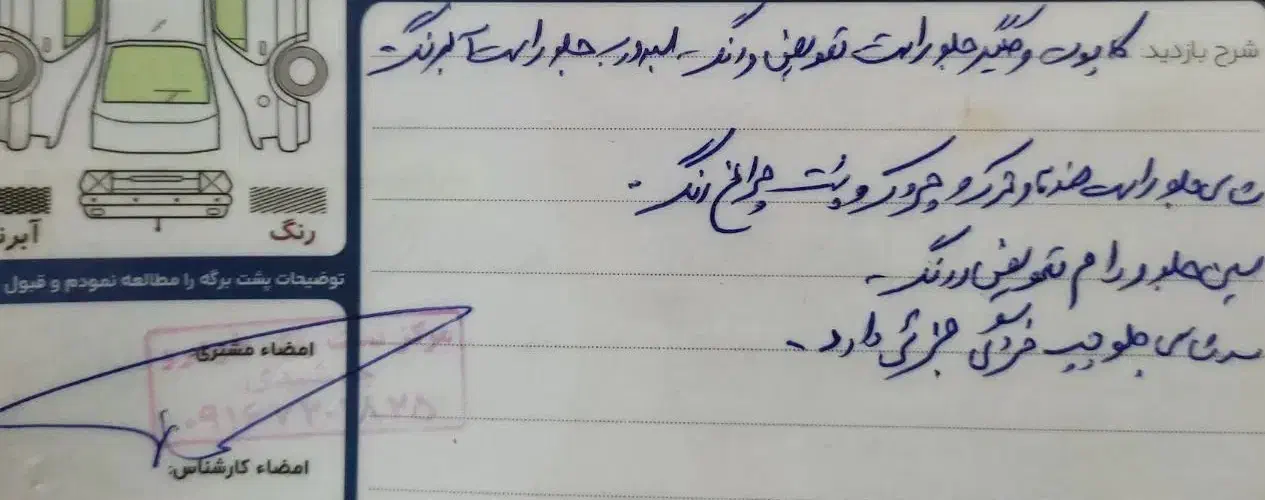 شرح بازدید کاپوت و گلگیر جلو راست تعویض و رنگ - لبه درب جلو راست آبرنگ
شاسی جلو راست ضربه و ترک و چروک و پشت چراغ رنگ -
سینی جلو و رام تعویض و رنگ -
سرشاسی جلو چپ خوردگی جزئی دارد -
رنگ
آبرن
توضیحات پشت برگه را مطالعه نمودم و قبول
امضاء مشتری:
امضاء کارشناس: